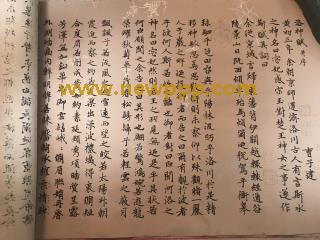 洛神賦 并序
曹子建
黄初三年余朝京師還濟洛川古人有言斯水
之神名曰宓妃感宋玉對楚王神女之事遂作
斯賦其詞曰
余從京域言歸東藩背伊闕越轘轅經通谷
陵景山日既西傾車殆馬煩爾迺稅駕乎蘅皋
秣駟乎芝田容與乎陽林流眄乎洛川於是精
移神駭忽焉思散俯則未察仰以殊觀覩一麗
人于巖之畔迺援御者而告之曰爾有覿於彼者
乎彼何人斯若此之豔也御者對曰臣聞河洛之
神名曰宓妃然則君王之所見無迺是乎其狀若
何臣願聞之余告之曰其形也翩若驚鴻婉若遊龍
榮曜秋菊華茂春松髣髴兮若輕雲之蔽月
飄颻兮若流風之迴雪遠而望之皎若太陽升朝
霞迫而察之灼若芙蕖出淥波襛纖得衷脩短
合度肩若削成腰如約素延頸秀項皓質呈露
芳澤無加鉛華弗御雲髻峨峨脩眉聯娟丹唇
外朗皓齒內鮮明眸善睞靨輔承權
www.newppu.com